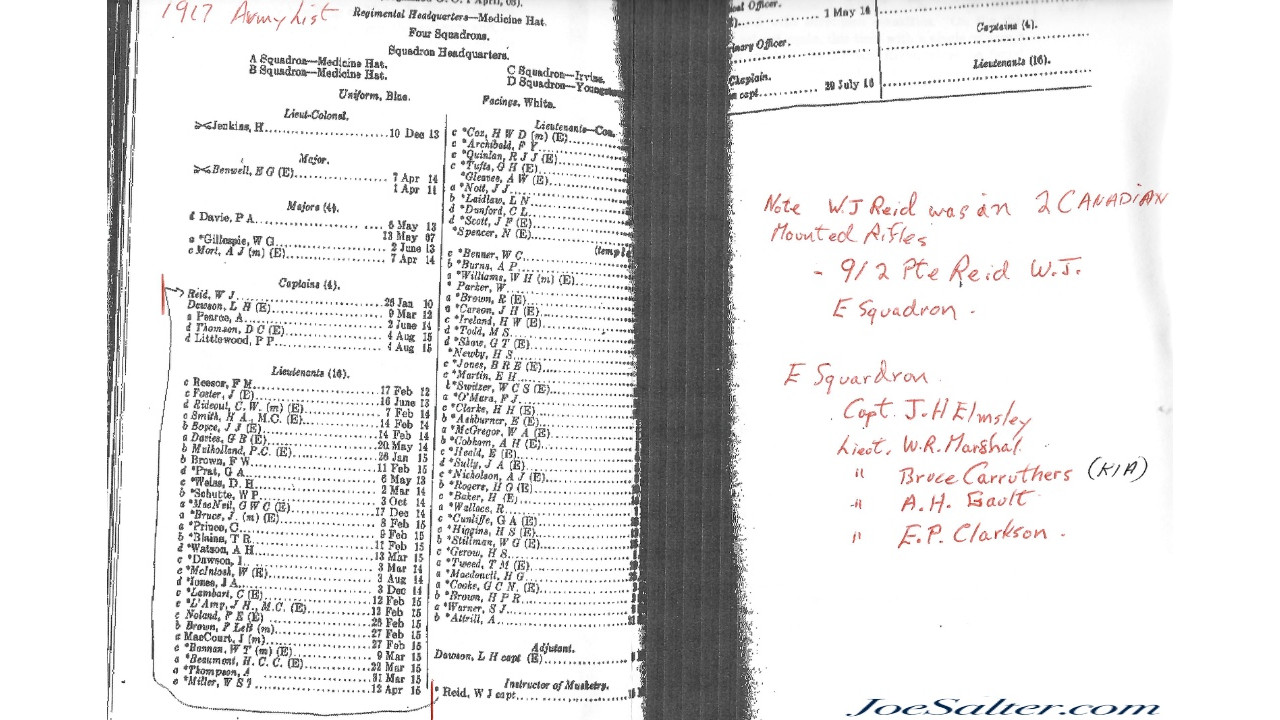 1917 Army List
Regimental Headquarters—Medicine Hat.
Four Squadrons.
Squadron Headquarters.
A Squadron—Medicine Hat.
B Squadron—Medicine Hat.
C Squadron—Irvine.
D Squadron—
Uniform, Blue.
Facings, White.
Lieut-Colonel.
Jenkins, H. 10 Dec 13
Major.
Benwell, E G (E) 7 Apr 14
1 Apr 11
Majors (4).
d Davie, P A 6 May 13
13 May 07
a *Gillespie, W G 2 June 13
c Mort, A J (m) (E) 7 Apr 14
Captains (4).
Reid, W J 26 Jan 10
Dawson, L H (E) 9 Mar 12
a Pearce, A 2 June 14
d Thomson, D C (E) 4 Aug 15
d Littlewood, P P 4 Aug 15
Lieutenants (16).
c Reesor, F M 17 Feb 12
c Foster, J (E) 16 June 13
d Rideout, C. W. (m) (E) 7 Feb 14
c Smith, H A., M.C. (E) 14 Feb 14
b Boyce, J J (E) 14 Feb 14
a Davies, G B (E) 20 May 14
b Mulholland, P.C. (E) 26 Jan 15
b Brown, F W 11 Feb 15
d *Prat, G A 6 May 13
c *Weiss, D. H 2 Mar 14
b *Schutte, W P 3 Oct 14
a *MacNeil, G W C (E) 17 Dec 14
a *Bruce, J. (m) (E) 8 Feb 15
a *Prince, C 9 Feb 15
b *Blains, T R 11 Feb 15
d *Watson, A H 13 Mar 15
c *Dawson, I 3 Mar 14
c *McIntosh, W (E) 3 Aug 14
d *Jones, J A 3 Dec 14
c *Lambart, C (E) 12 Feb 15
c *L'Amy, J H., M.C. (E) 12 Feb 15
c Noland, F E (E) 26 Feb 15
b Brown, F LeB (m) 27 Feb 15
a MacCourt, J (m) 27 Feb 15
c *Bannan, W T (m) (E) 9 Mar 15
a *Beaumont, H. C. C. (E) 22 Mar 15
a *Thompson, A 31 Mar 15
c *Miller, W S 13 Apr 15
Lieutenants—Con.
c *Cox, H W D (m) (E)
c *Archibald, F Y
c *Quinlan, R J J (E)
c *Tufts, G H (E)
*Gleaves, A W (E)
a *Nott, J J
b *Laidlaw, L N
d *Danford, C L
d *Scott, J F (E)
*Spencer, N (E)
c *Benner, W C
b *Burns, A P
a *Williams, W H (m) (E)
*Parker, W
a *Brown, R (E)
a *Carson, J H (E)
c *Ireland, H W (E)
d *Todd, M S
d *Shaw, G T (E)
*Newby, H S
c *Jones, B R E (E)
c *Martin, E H
b *Switzer, W C S (E)
a *O'Mara, F J
c *Clarke, H H (E)
b *Ashburner, E (E)
a *McGregor, W A (E)
b *Cobham, A H (E)
c *Heald, E (E)
d *Sully, J A (E)
c *Nicholson, A J (E)
b *Rogers, H G (E)
c *Baker, H (E)
a *Wallace, R
c *Cunliffe, G A (E)
a *Higgins, H S (E)
b *Stillman, W G (E)
c *Gerow, H S
a *Tweed, T M (E)
a *Macdonell, H G
a *Cooke, G C N. (E)
b *Brown, H P R
a *Warner, S J
b *Attrill, A
Adjutant.
Dawson, L H capt (E)
Instructor of Musketry.
* Reid, W J capt
Officer.
1 May 16
Officer.
Chaplain.
capt. 29 July 16
Captains (4).
Lieutenants (16).
Note W.J Reid was in 2 CANADIAN
Mounted Rifles
- 912 Pte Reid W.J.
E Squadron.
E Squardron
Capt. J.H Elmsley
Lieut. W.R. Marshal
" Bruce Carruthers (KIA)
" A.H. Gault
" E.P. Clarkson.
JoeSalter.com